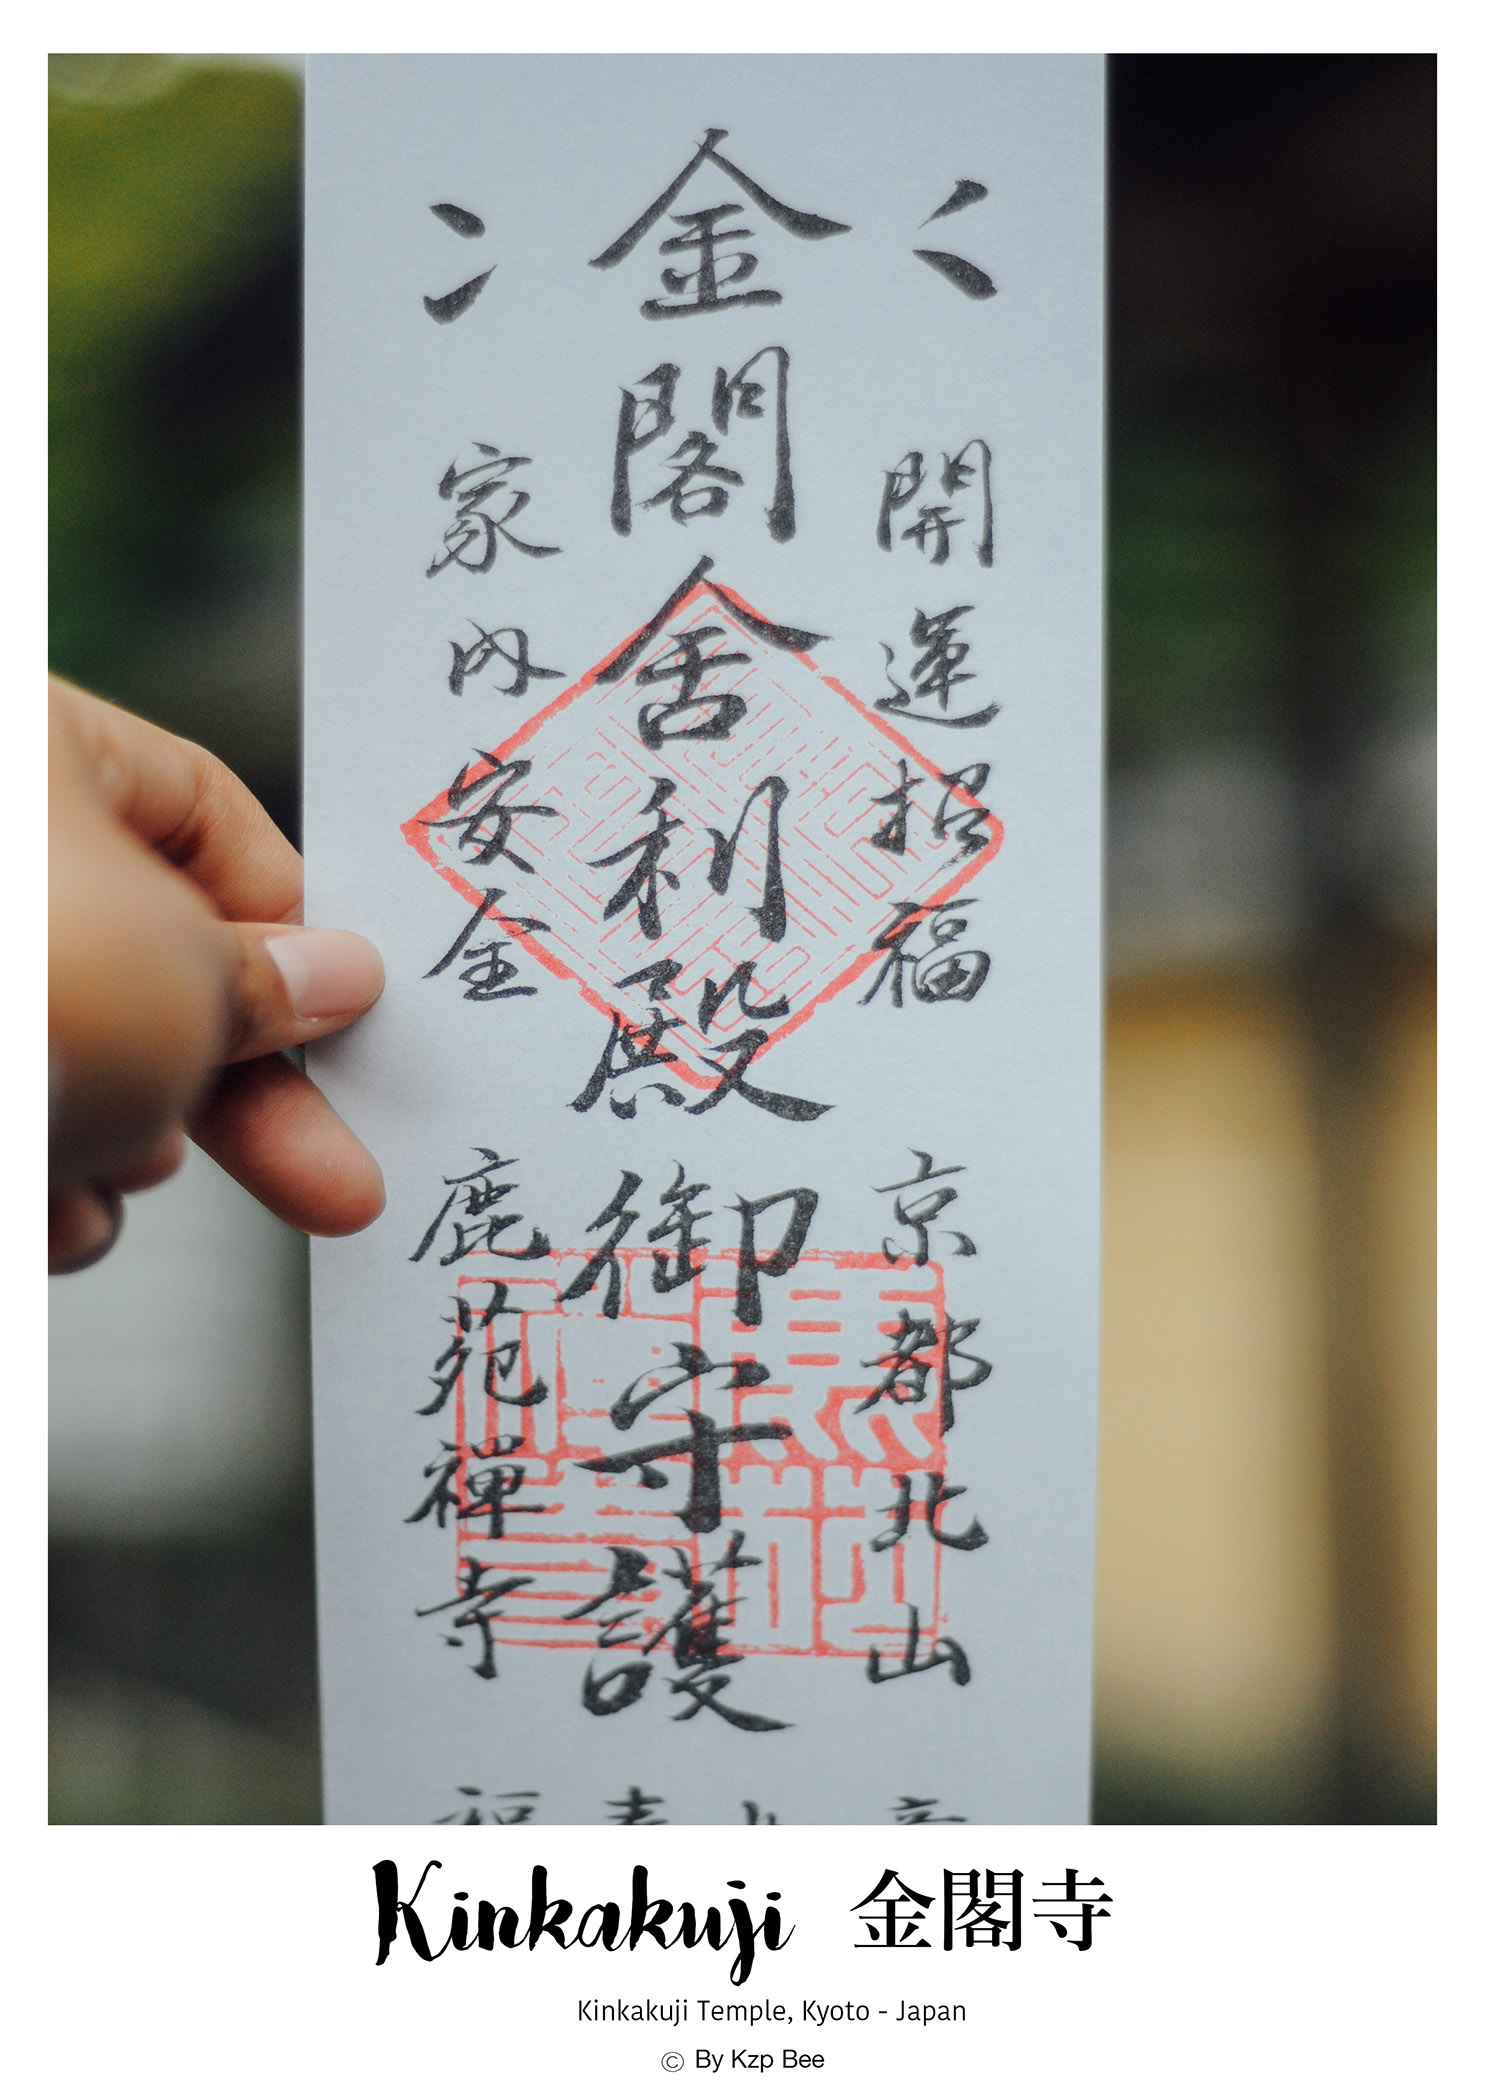 開運招福
京都北山
金閣舎利殿御守護
家内安全
鹿苑禅寺
Kinkakuji 金閣寺
Kinkakuji Temple, Kyoto - Japan
© By Kzp Bee